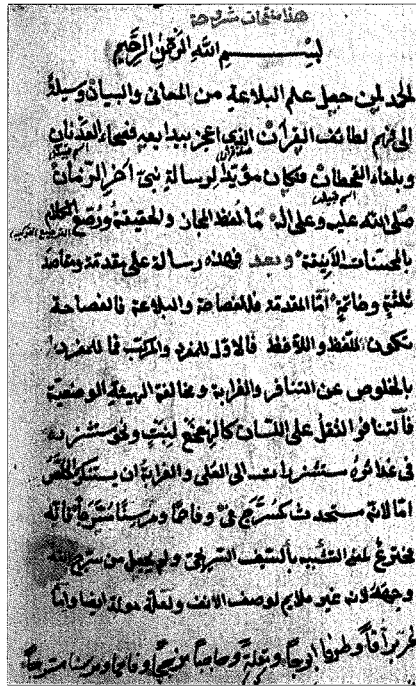 هذا متقات شروحة
بسم الله الرحمن الرحيم
الحمد لمن جعل علم البلاغة من المعانى والبيان وسيلة
الى فهم لطائف القرآن الذى اعجز ببدايعه فصحاء العدنان
وبلغاء القحطان فكان مؤيدا لرسالة نبى آخر الزمان
صلى الله عليه وعلى اله ما لفظ المجاز والحقيقة ورصع الكلام
بالمحسنات الانيقة وبعد فهذه رسالة على مقدمة ومقاصد
ثلثة وخاتمة اما المقدمة فللفصاحة والبلاغة فالفصاحة
تكون للفظ واللافظ فالاول للمفرد والمركب فما للمفرد
بالخلوص عن التنافر والغرابة ومخالفة الهيئة الوضعية
فالتنافر الثقل على اللسان كالهعخع لنبت ونحو مستشزر
غدائره مستشزرات الى العلى والغرابة ان يستنكر
اما لانه مستحدث كمسرج فى وفاحما ومرسنا مسرجا فانه
مخترع لمعنى التشبيه بالسيف السريجى ولم يجعل من سرج الله
وجهه لان غير ملايم لوصف الانف ولعله مولد ايضا واما